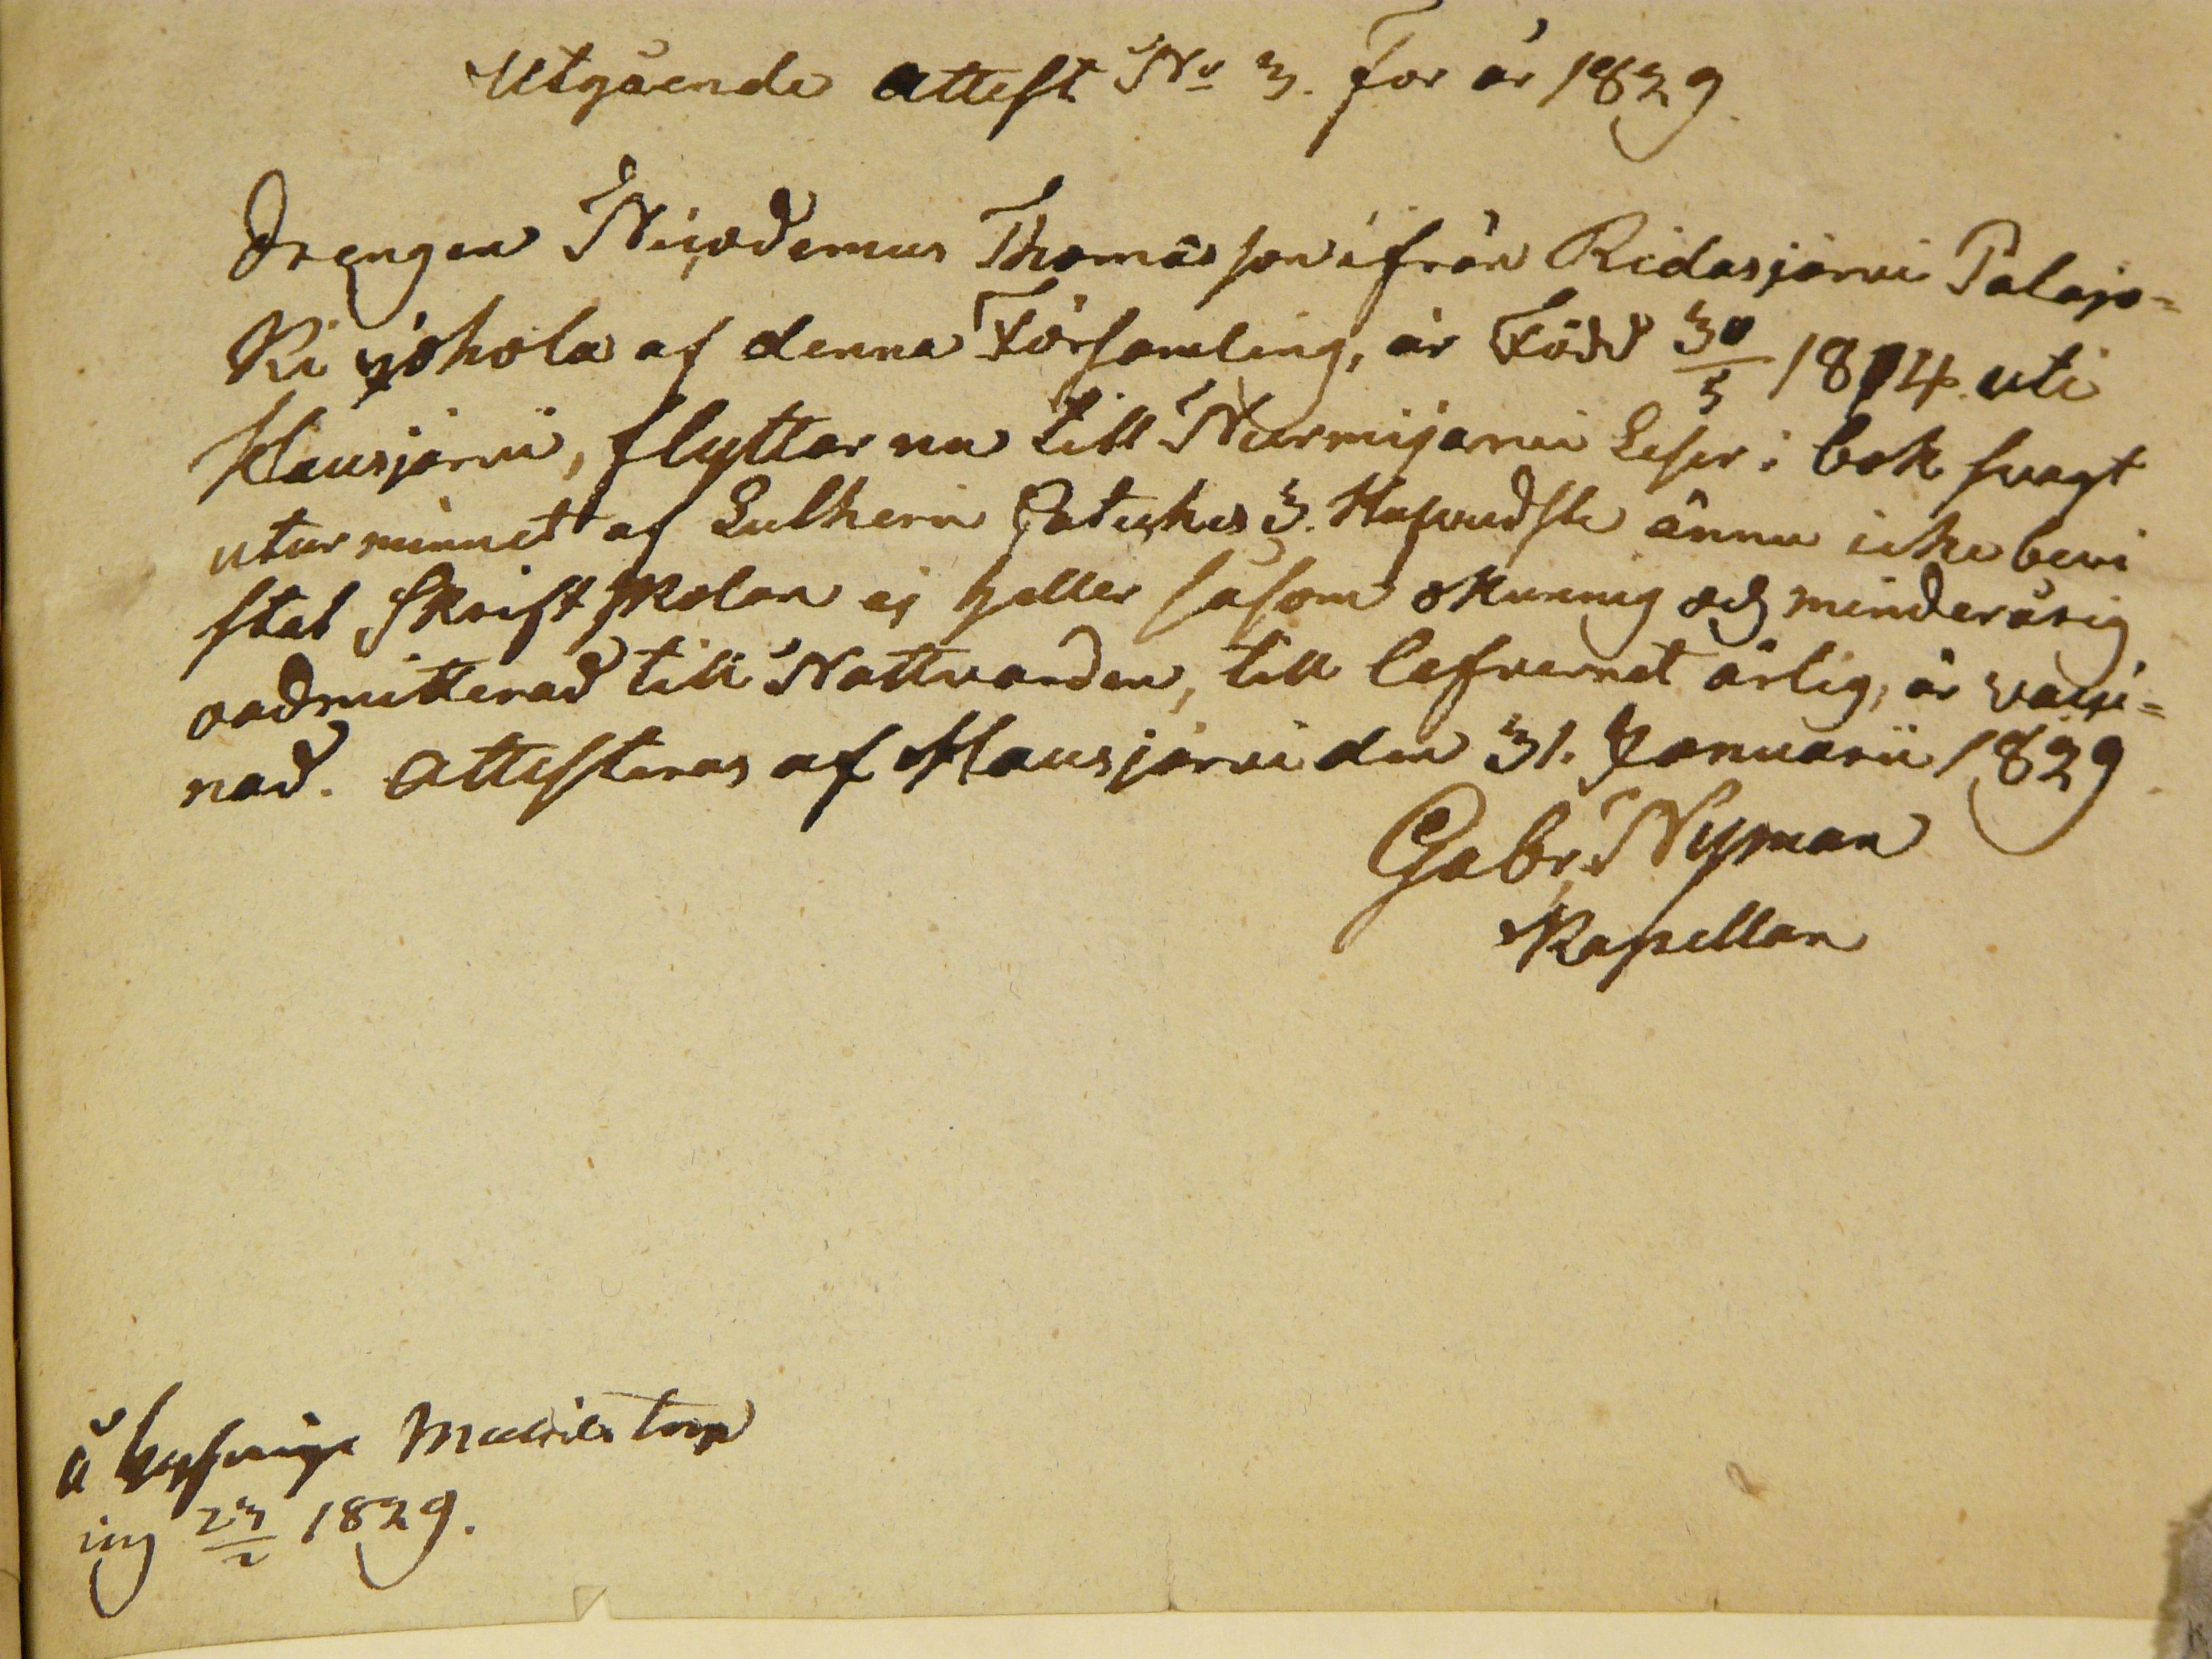 Utgående attest No 3. för år 1829.
Drengen Nicodemus Thomasson ifrån Ridasjärvi Palajo=
ki johola af denna Församling, är Född 30/5 1814. uti
Hausjärvi, flyttar nu till Nurmijärvi Läser i bok svagt
utur minnet af Lutheri Cateches 3. Hufvudst. ännu icke bevi
stat Skriftskolan ej heller såsom okunnig och minderårig
oadmitterad till Nattvarden, till lefvernet ärlig, är vacci=
nad. Attesteras af Hausjärvi den 31. Januarii 1829
Gabr. Nyman
Kapellan
å torp
ing 23/2 1829.